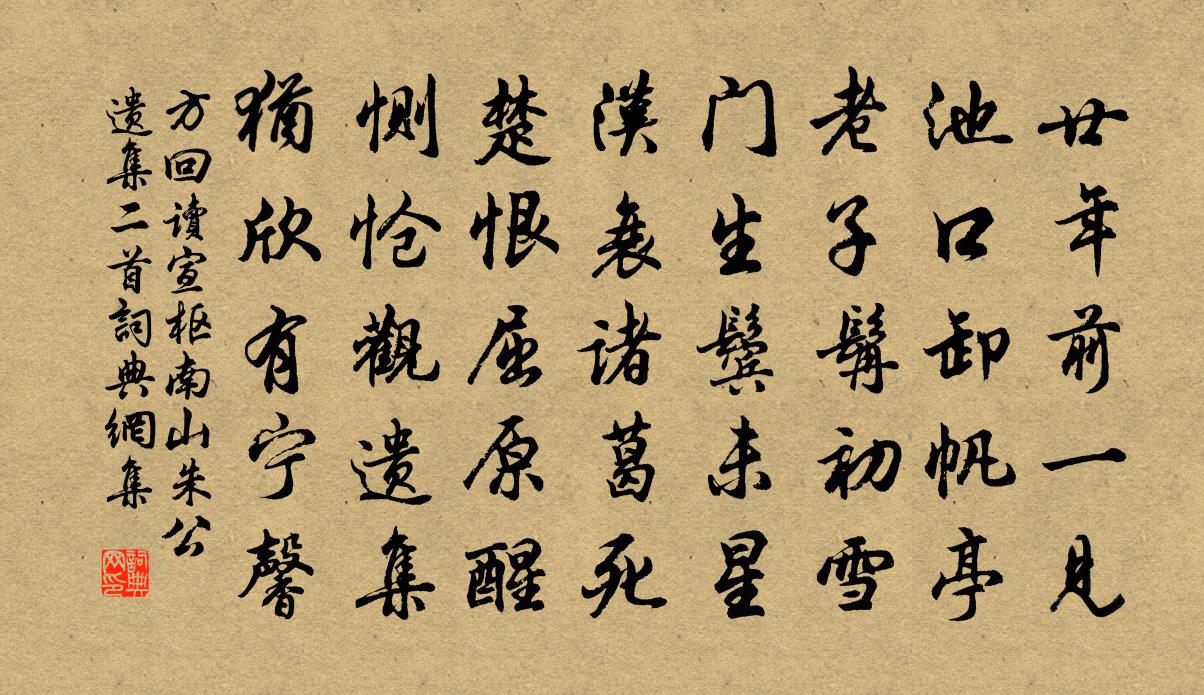 廿年前一见
池口卸帆亭
老子髯初雪
门生鬓未星
漢衰诸葛死
楚恨屈原醒
恻怆觀遗集
猶欣有宁馨
方回读宣枢南山朱公
遗集二首詞典網集
詞典网印